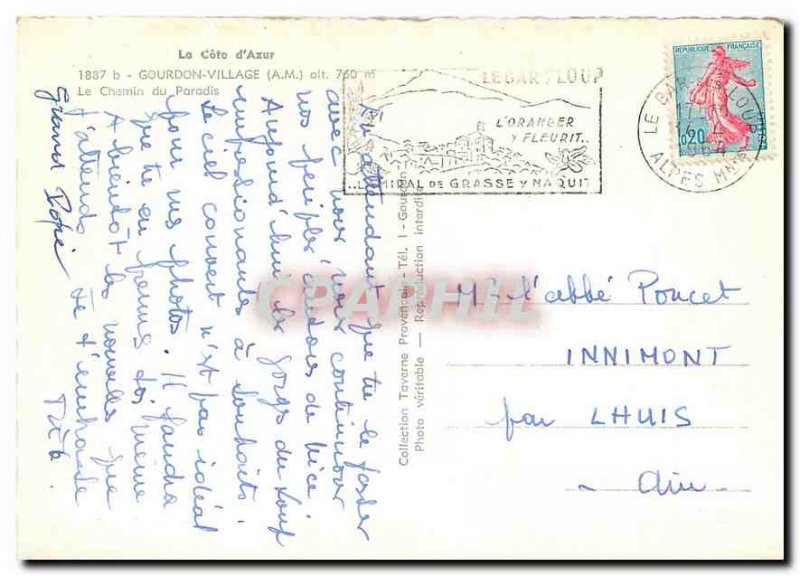 La Côte d'Azur
1887 b - GOURDON-VILLAGE (A.M.) alt. 760 m
Le Chemin du Paradis
LE BAR s/ LOUP
L'ORANGER
Y FLEURIT..
..L'AMIRAL DE GRASSE Y NAQUIT
REPUBLIQUE FRANÇAISE
0,20
LE BAR SUR LOUP
ALPES MMES
En attendant que tu le fasses
avec nous nous continuons
nos périples autour de Nice.
Aujourd'hui les gorges du Loup
impressionantes à souhaits.
Le ciel couvert n'est pas idéal
pour nos photos. Il faudra
que tu en prennes toi même
A bientôt les nouvelles que
j'attends. Je t'embrasse
Grand
Collection Taverne Provençale - Tél. 1 - Gourdon
Photo véritable — Reproduction interdite
CPAPHIL
Mr l'abbé Poncet
INNIMONT
par LHUIS
- Ain -